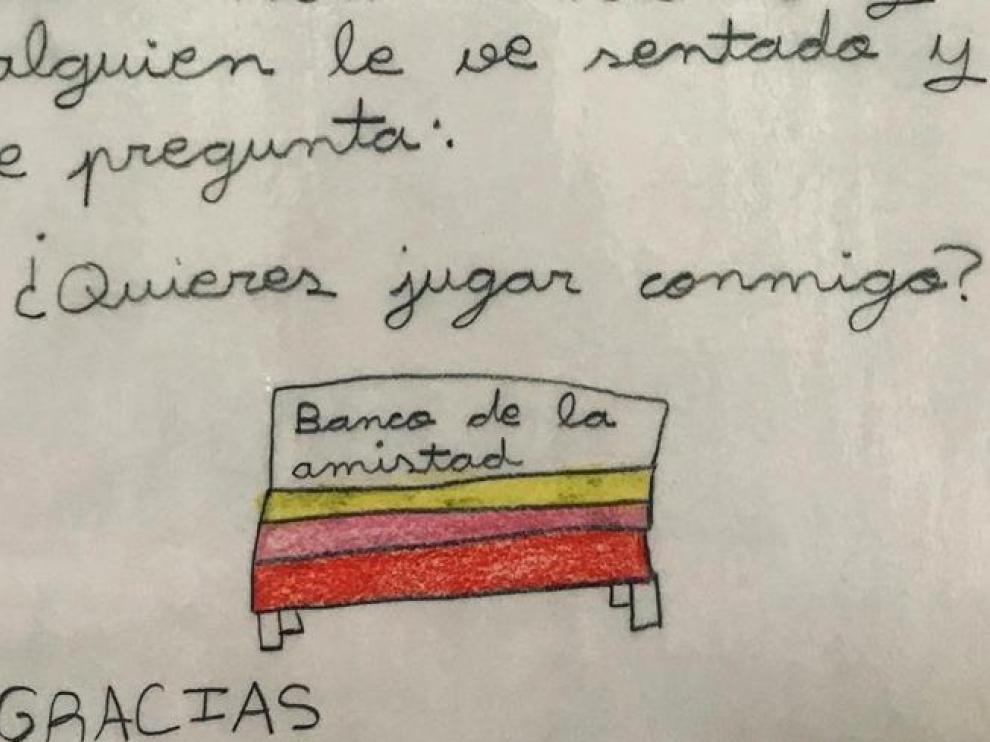 alguien le ve sentado y
e pregunta:
¿Quieres jugar conmigo?
Banco de la
amistad
GRACIAS